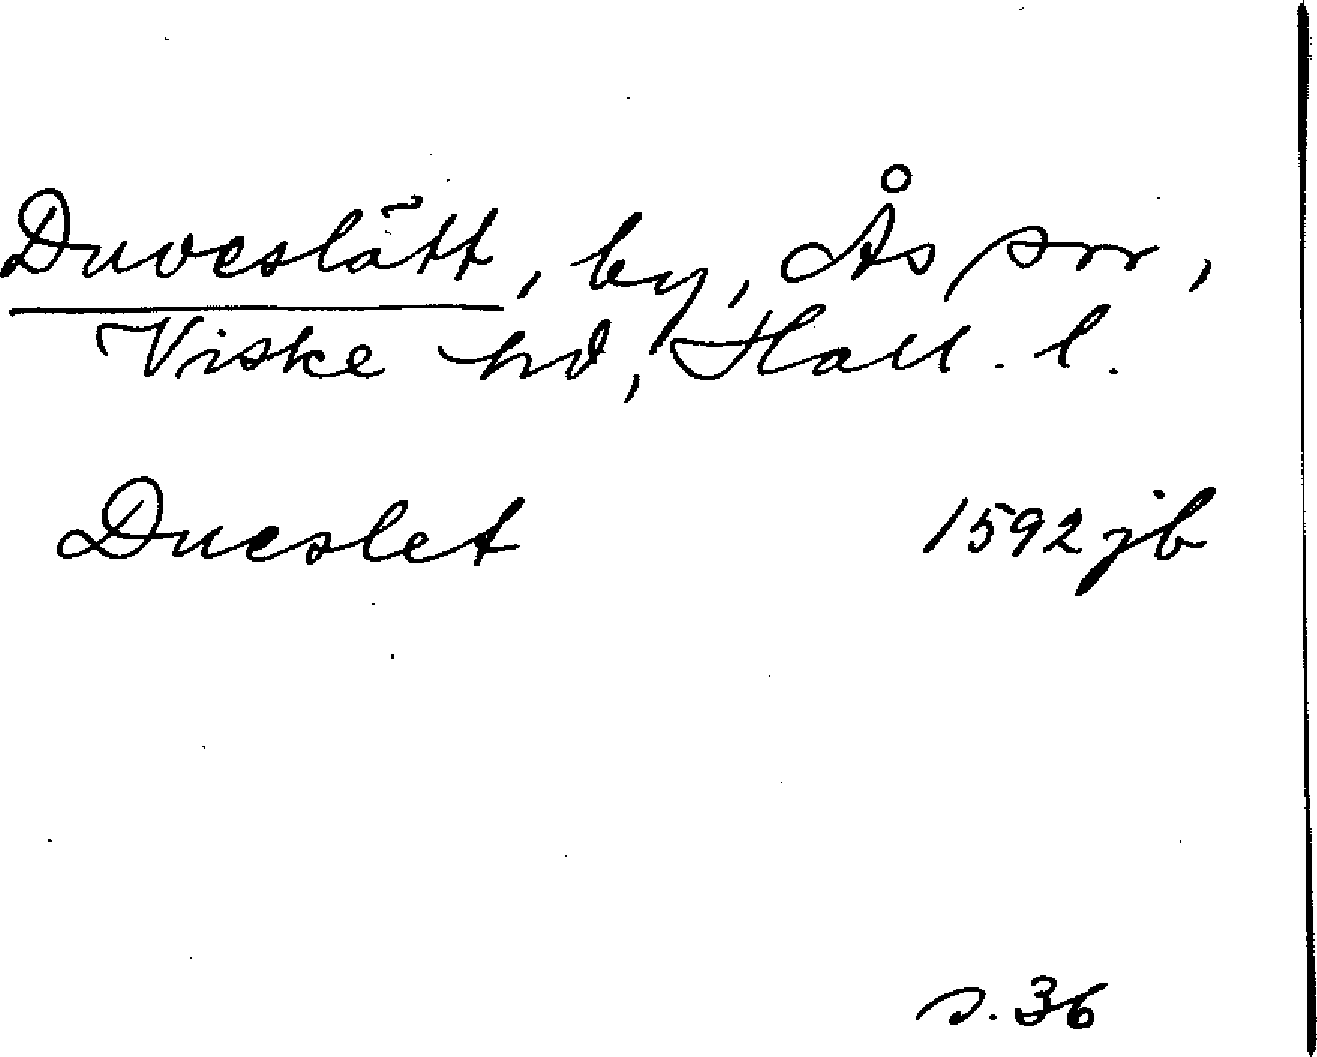 Duveslätt, by, Ås sn,
Viske hd, Hall. l.
Dueslet 1592 jb
s. 36